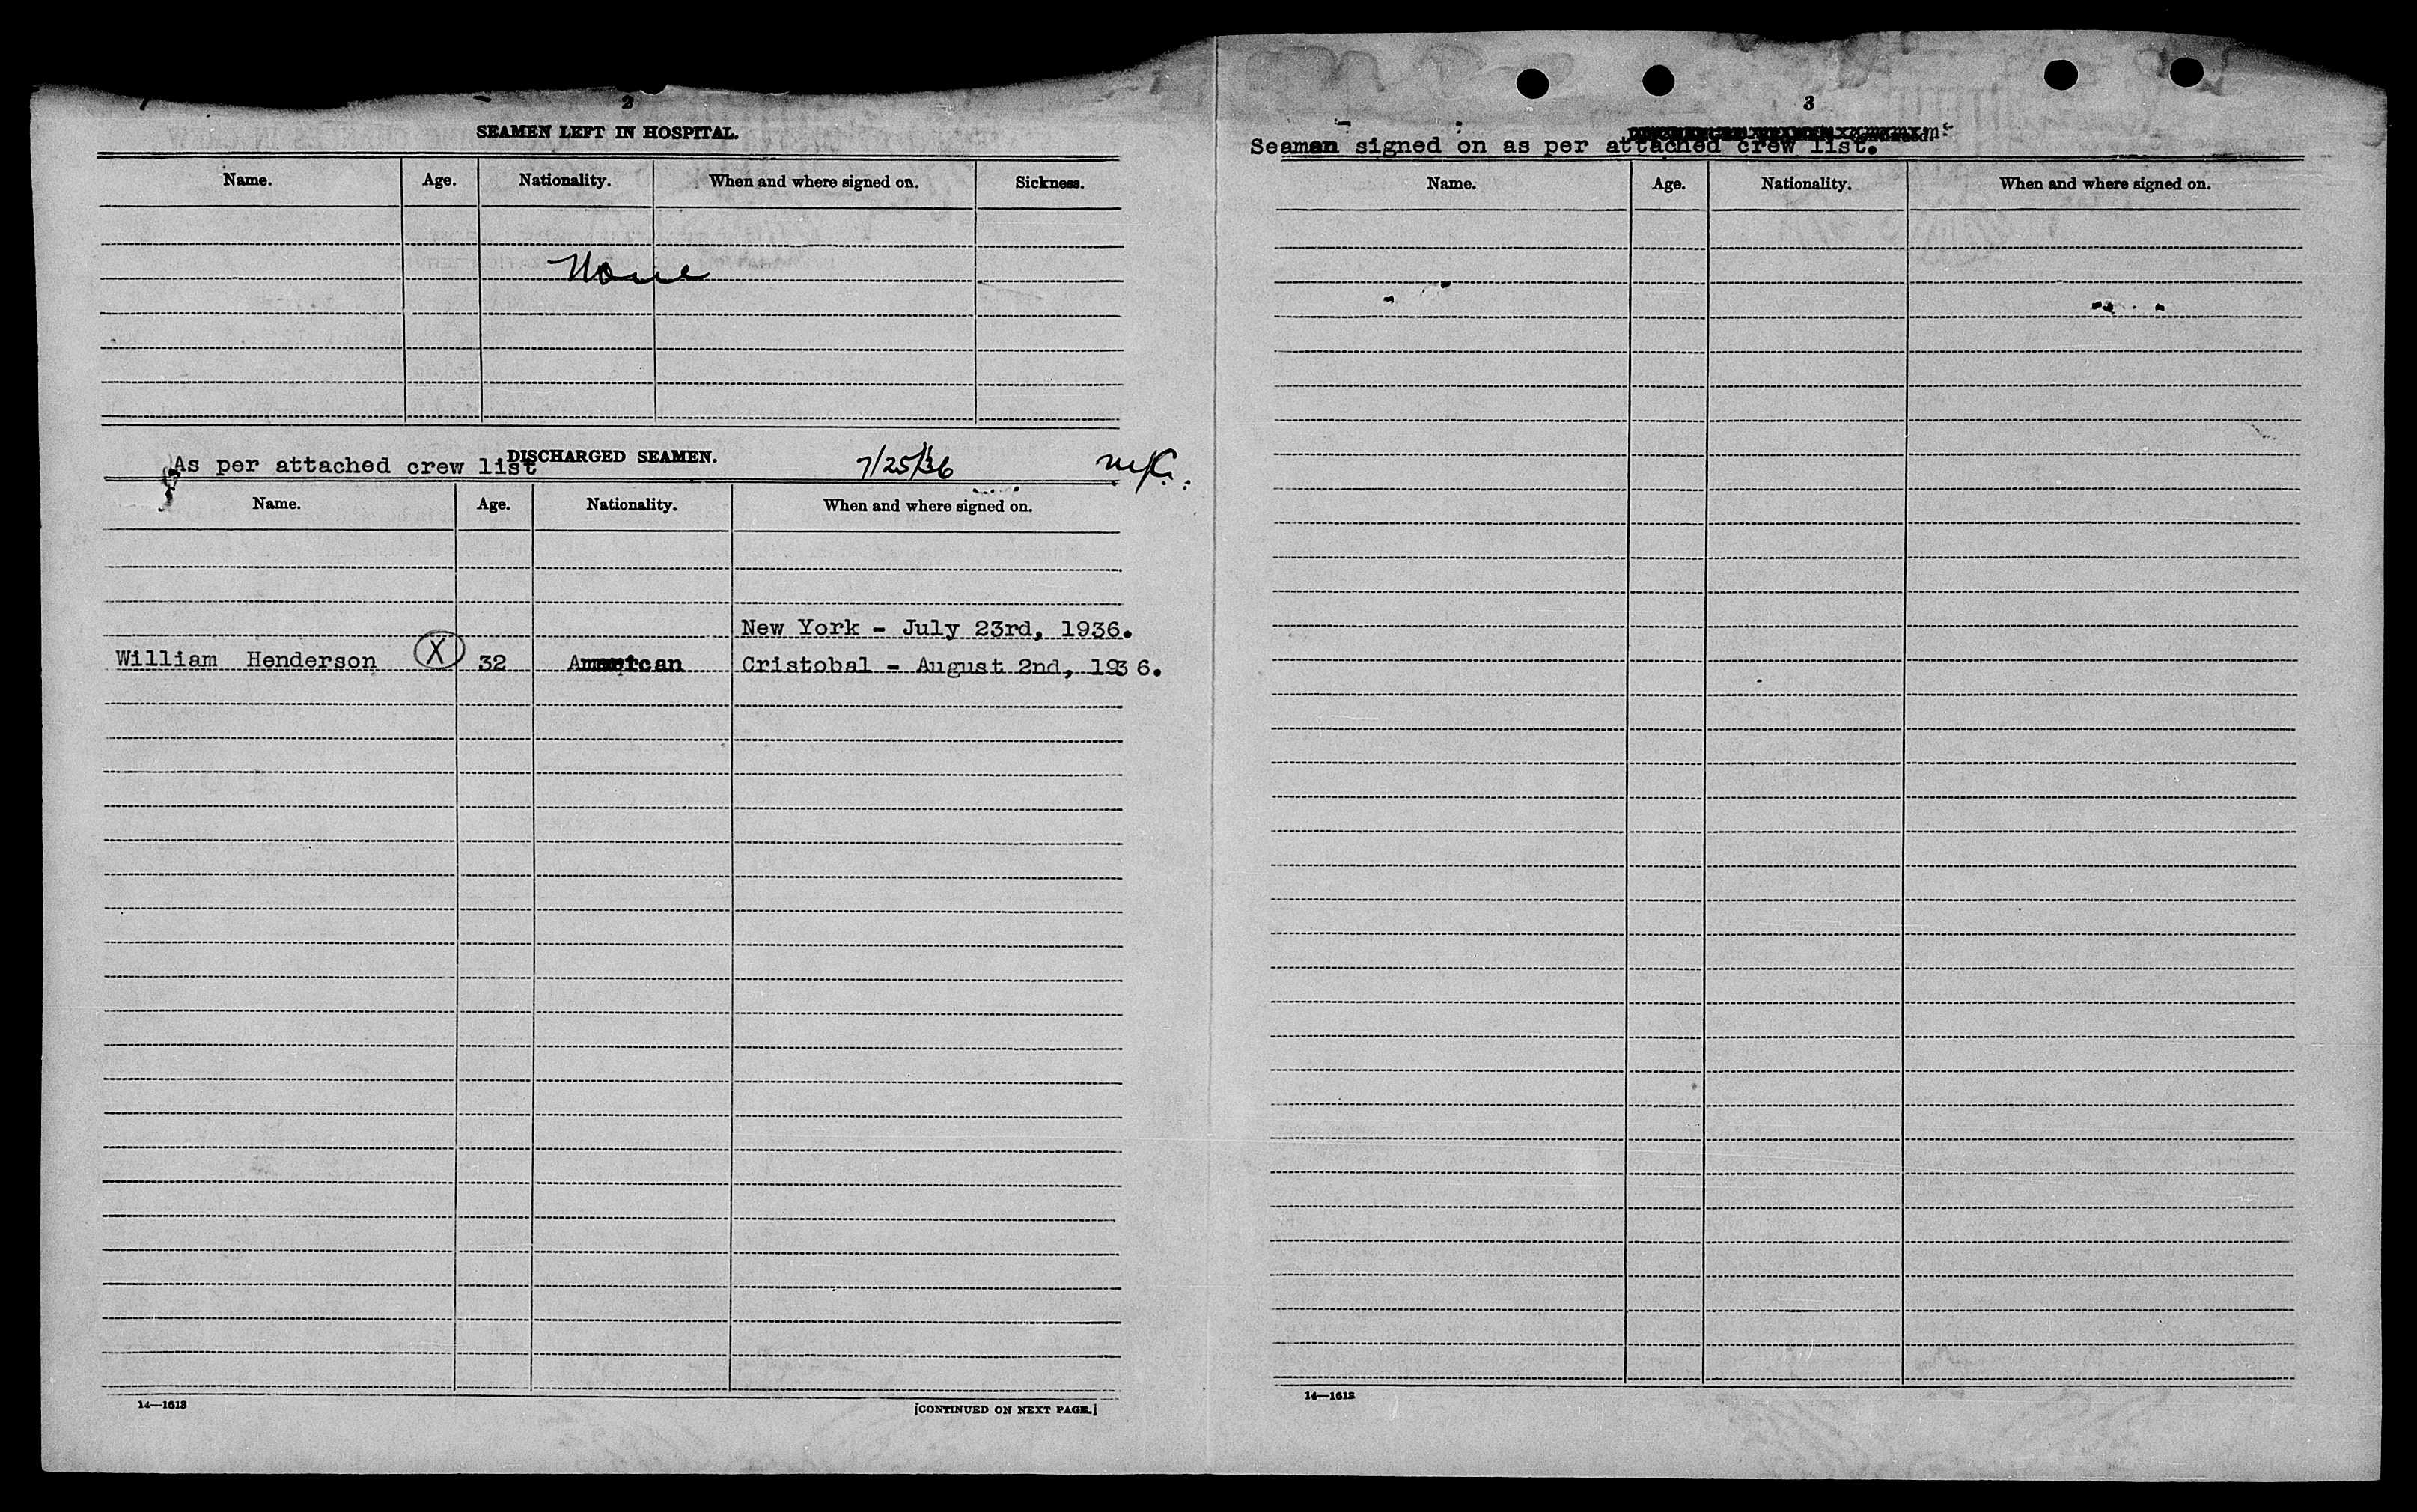 2
SEAMEN LEFT IN HOSPITAL.
Name. Age. Nationality. When and where signed on. Sickness.
None
As per attached crew list DISCHARGED SEAMEN. 7/25/36
Name. Age. Nationality. When and where signed on.
New York - July 23rd, 1936.
William Henderson X 32 American Cristobal - August 2nd, 1936.
14—1613
[CONTINUED ON NEXT PAGE.]
3
Seaman signed on as per attached crew list.
Name. Age. Nationality. When and where signed on.
14—1613